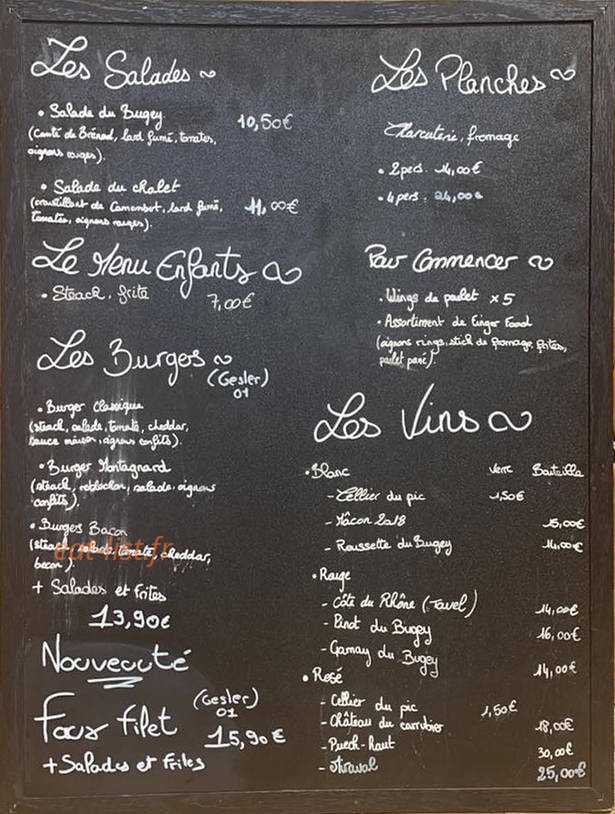 Les Salades
• Salade du Bugey 10,50€
(Comté de Brénod, lard fumé, tomates,
oignons rouges).
• Salade du chalet
(croustillant de Camembert, lard fumé, 11,00€
tomates, oignons rouges).
Le Menu Enfants
• Steack, frite 7,00€
Les Burgers
(Gesler)
01
• Burger Classique
(steack, salade, tomate, cheddar,
sauce maison, oignons confits).
• Burger Montagnard
(steack, reblochon, salade, oignons
confits).
• Burger Bacon
(steack, salade, tomate, cheddar,
bacon).
eat-list.fr
+ Salades et frites
13,90€
Nouveauté
Faux filet (Gesler)
01
15,90€
+ Salades et Frites
Les Planches
Charcuterie, fromage
• 2 pers. 14,00€
• 4 pers. 24,00€
Pour Commencer
• Wings de poulet x 5
• Assortiment de Finger Food
(oignons rings, stick de fromage, frites,
poulet pané).
Les Vins
• Blanc Verre Bouteille
- Cellier du pic 1,50€
- Mâcon 2018 15,00€
- Roussette du Bugey 14,00€
• Rouge
- Côte du Rhône (Tavel) 14,00€
- Pinot du Bugey 16,00€
- Gamay du Bugey 14,00€
• Rosé
- Cellier du pic 1,50€
- Château du carrubier 18,00€
- Puech-haut 30,00€
- 25,00€